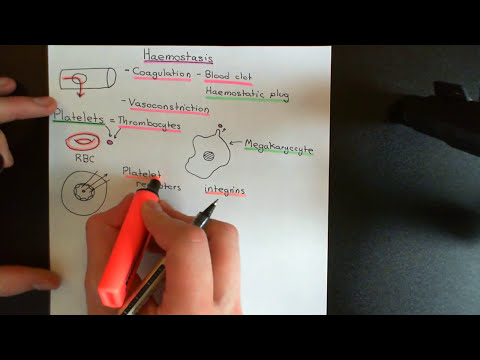 Haemostasis
- Coagulation - Blood clot
Haemostatic plug
- Vasoconstriction
Platelets = Thrombocytes
Megakaryocyte
RBC
Platelet integrins
receptors